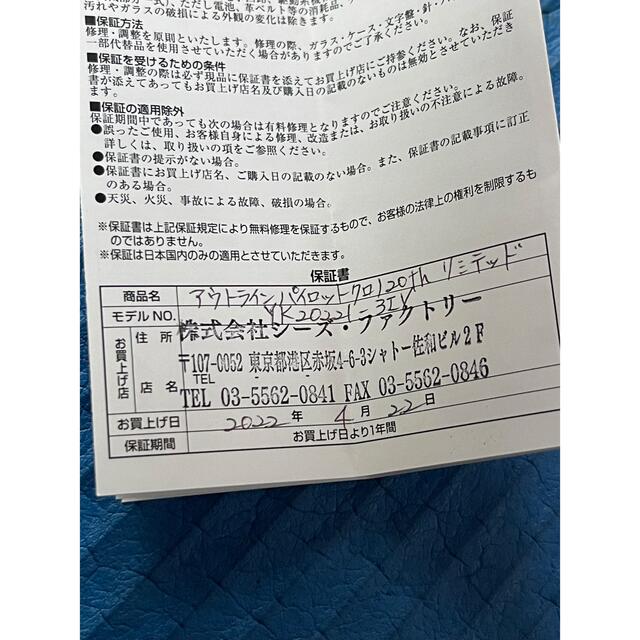 汚れやガラスの破損による外観の変化は除きます。
■保証方法
修理・調整を原則といたします。修理の際、ガラス・ケース・文字盤・針・
一部代替品を使用させていただく場合がありますのでご了承ください。
■保証を受けるための条件
修理・調整の際は必ず現品に保証書を添えてお買上げ店にご持参ください。なお、保証
書が添えてあってもお買上げ店名及び購入日の記載のないものは無効とさせていただき
ます。
■保証の適用除外
保証期間中であっても次の場合は有料修理となりますのでご注意ください。
●誤ったご使用、お客様自身による修理、改造または、お取り扱いの不注意による故障。
詳しくは、取り扱いの項をご参照ください。
●保証書の提示がない場合。
●保証書にお買上げ店名、ご購入日の記載のない場合。また、保証書の記載事項に訂正
のある場合。
●天災、火災、事故による故障、破損の場合。
※保証書は上記保証規定により無料修理を保証するもので、お客様の法律上の権利を制限するも
のではありません。
※保証は日本国内のみの適用とさせていただきます。
保証書
商品名 アウトラインパイロットクロ120th リミテッド
モデルNO. YK20221
お買上げ店 住所 株式会社シーズ・ファクトリー
〒107-0052 東京都港区赤坂4-6-3シャトー佐和ビル2F
店名 TEL
TEL 03-5562-0841 FAX 03-5562-0846
お買上げ日 2022 年 4 月 22 日
保証期間 お買上げ日より1年間